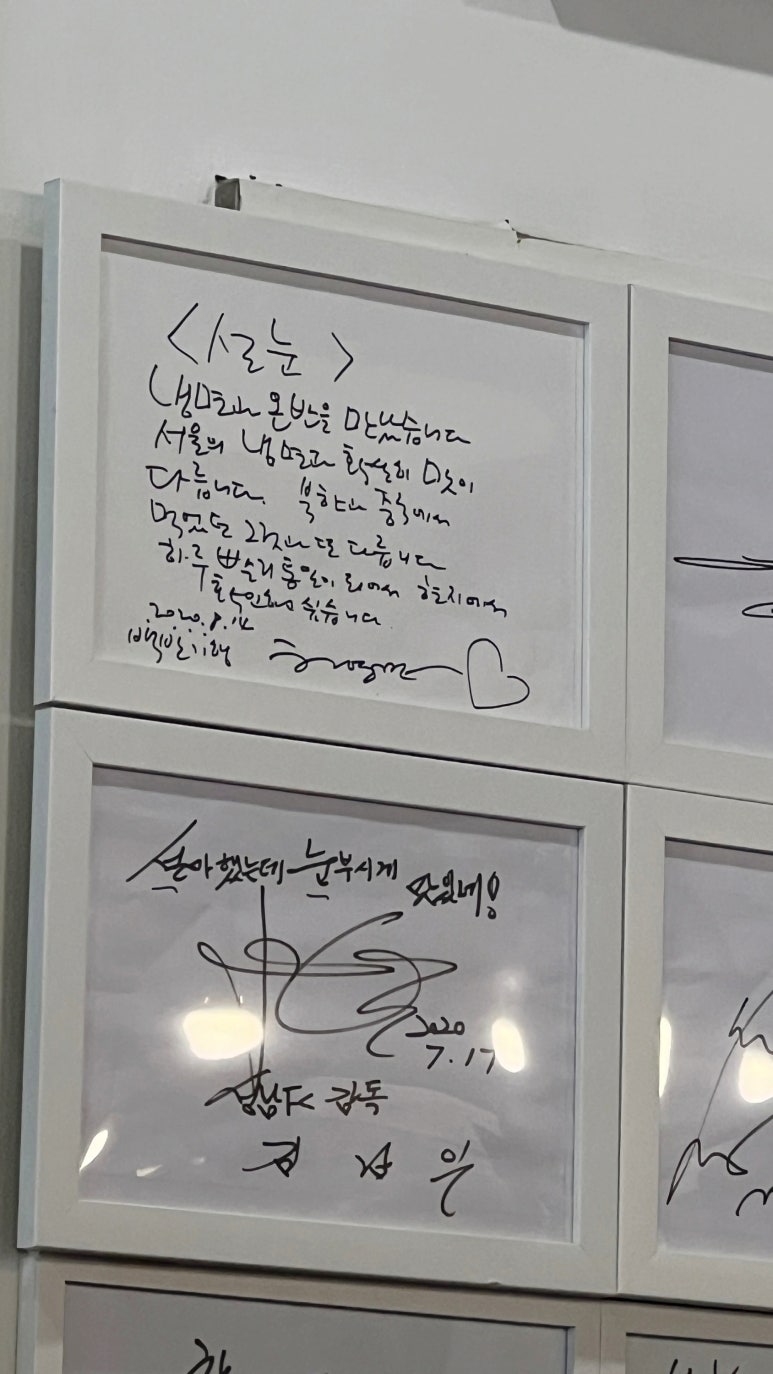 <설눈>
냉면과 온반을 맛봤습니다
서울의 냉면과 확실히 맛이
다릅니다. 북한과 중국에서
먹었던 것과 또 다릅니다
하루 빨리 통일이 되어서 현지에서
확인하고 싶습니다
2020. 8. 14
설마 했는데 눈부시게 맛있네!
2020
7. 17
성남FC 감독
김남일